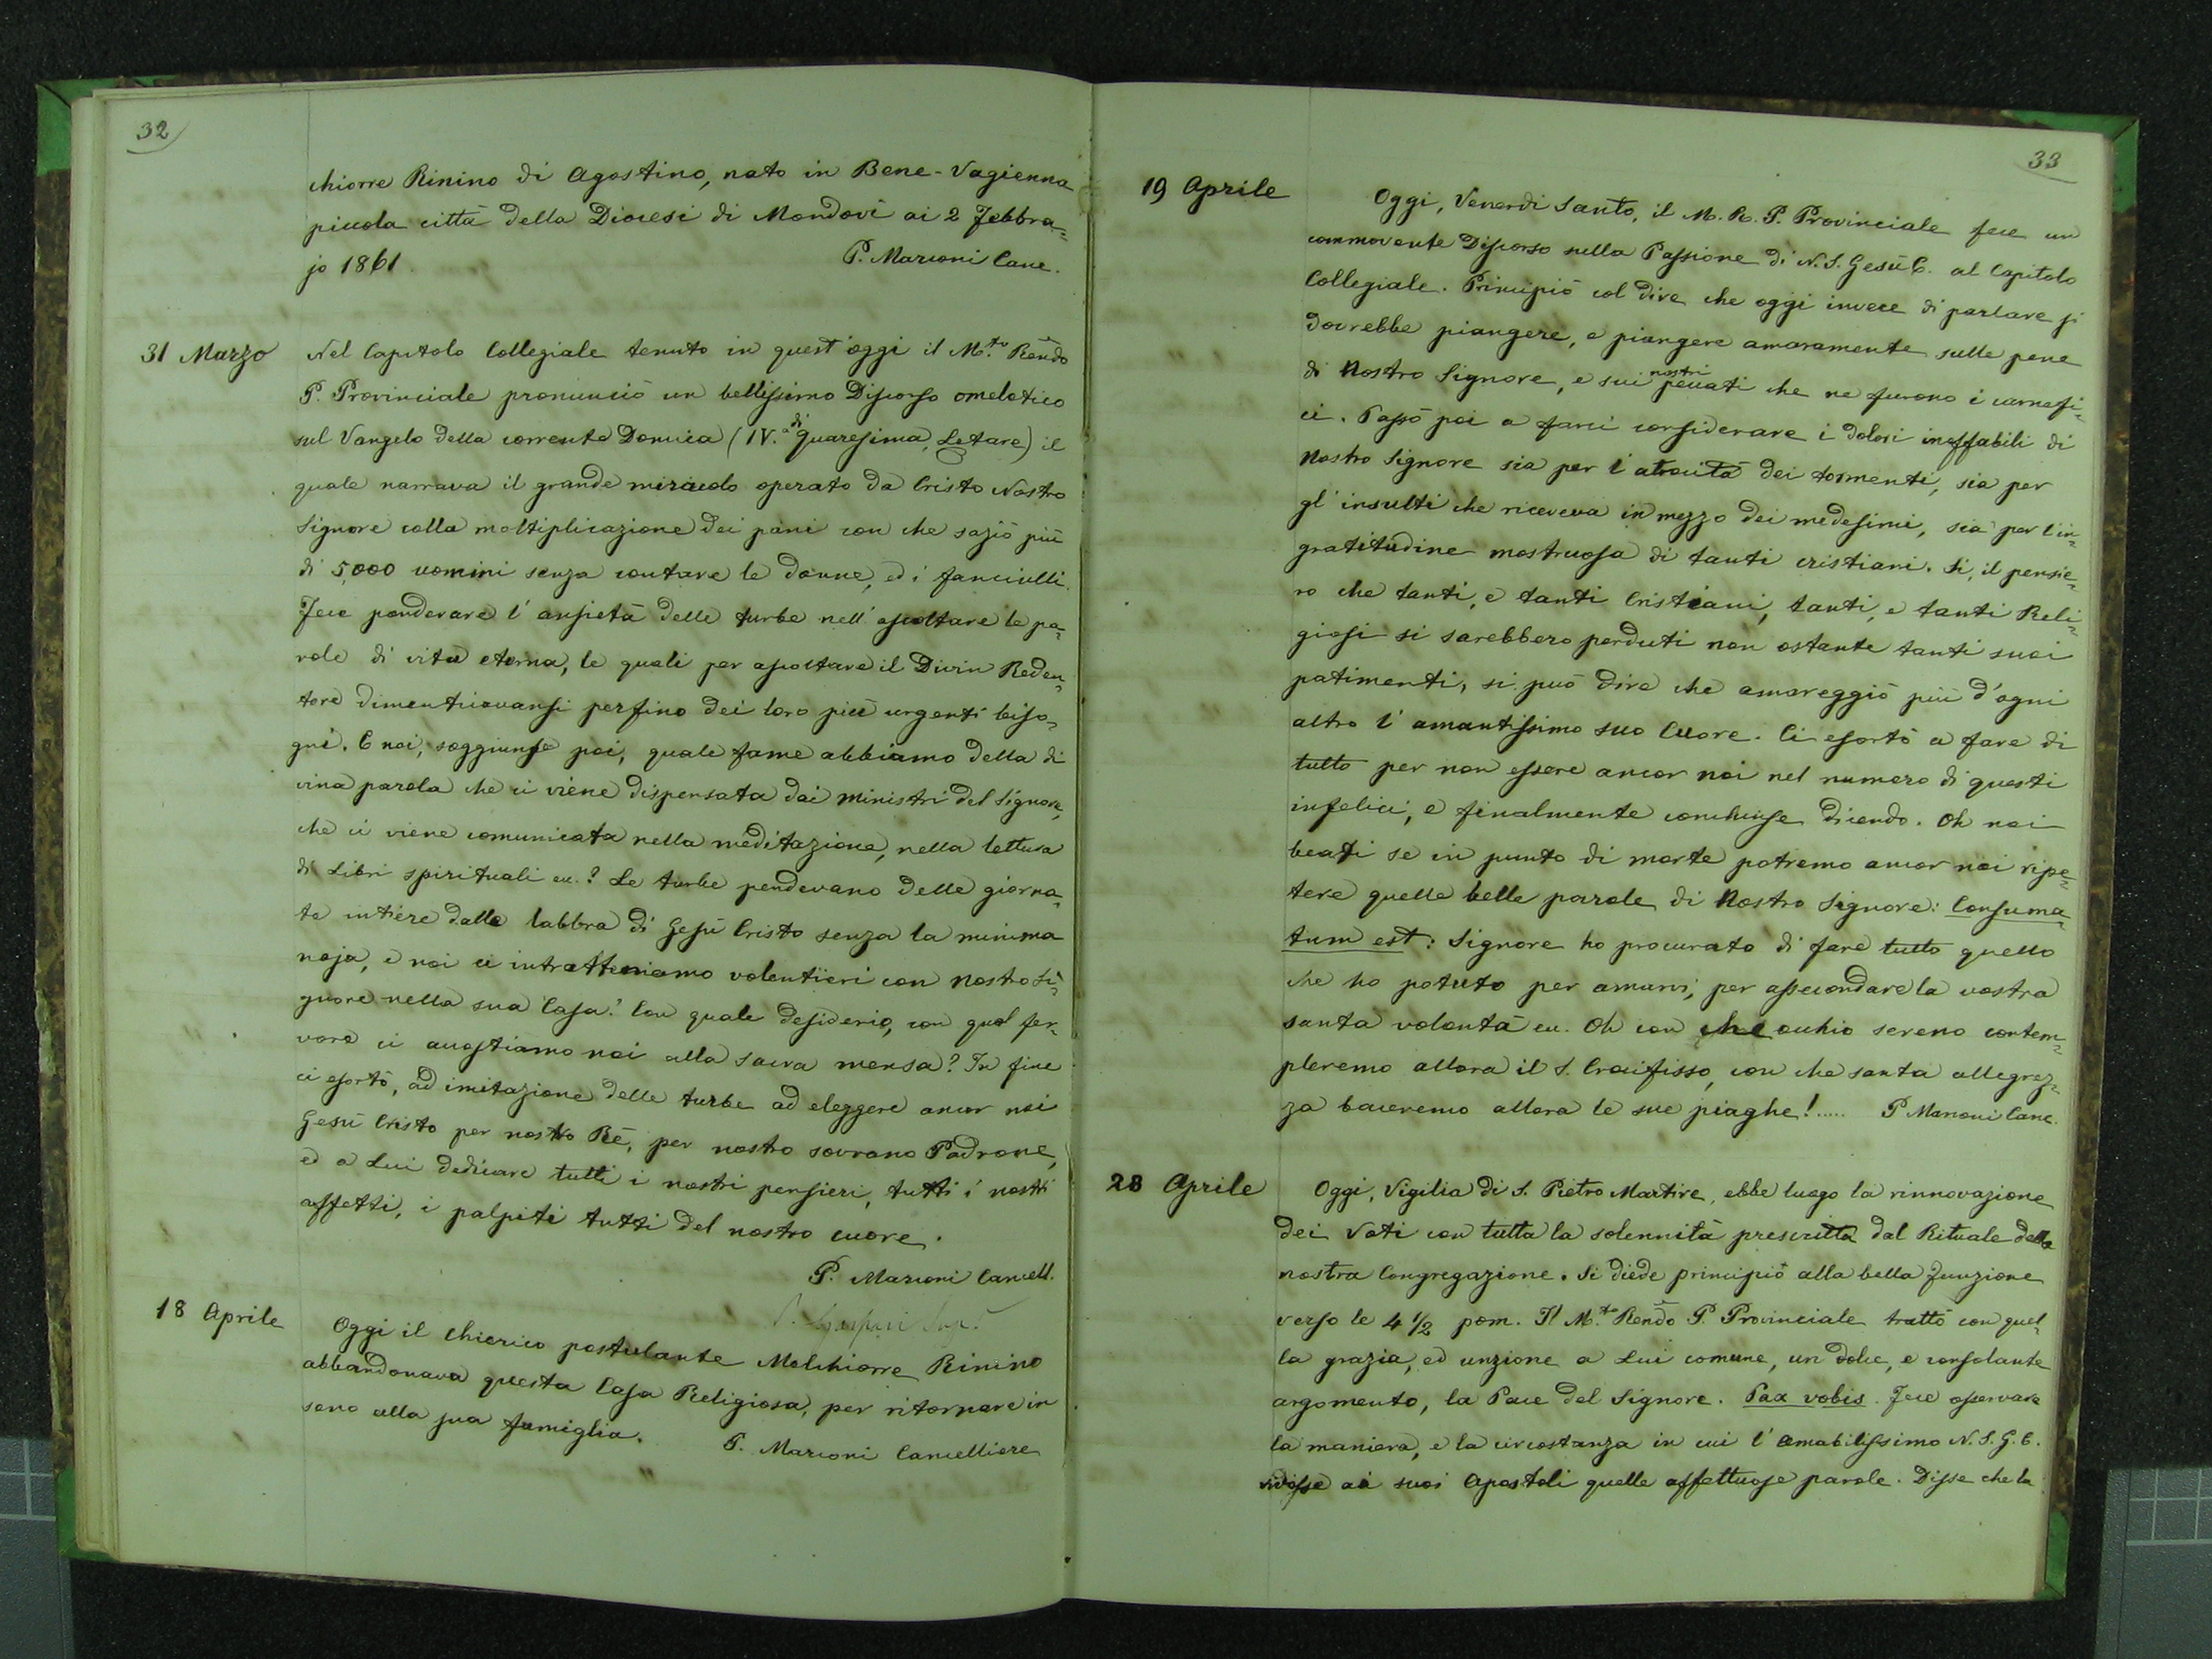 32
chiorre Rinino di Agostino, nato in Bene-Vagienna
piccola città della Diocesi di Mondovì ai 2 Febbra=
jo 1861. P. Marconi Canc.
31 Marzo Nel Capitolo Collegiale tenuto in quest'oggi il M.to Rendo
P. Provinciale pronunciò un bellissimo Discorso omeletico
sul Vangelo della corrente Domica (IV.a di Quaresima, Letare) il
quale narrava il grande miracolo operato da Cristo Nostro
Signore colla moltiplicazione dei pani con che saziò più
di 5,000 uomini senza contare le donne, ed i fanciulli.
Fece ponderare l'ansietà delle turbe nell'ascoltare le pa=
role di vita eterna, le quali per ascoltare il Divin Reden=
tore dimenticavansi perfino dei loro più urgenti biso=
gni. E noi, soggiunse poi, quale fame abbiamo della di
vina parola che ci viene dispensata dai ministri del Signore,
che ci viene comunicata nella meditazione, nella lettura
di Libri spirituali ec.? Le turbe pendevano delle giorna=
te intiere dalle labbra di Gesù Cristo senza la minima
noja, e noi ci intratteniamo volentieri con Nostro Si=
gnore nella sua Casa? Con quale desiderio, con qual fer=
vore ci accostiamo noi alla sacra mensa? In fine
ci esortò, ad imitazione delle turbe ad eleggere ancor noi
Gesù Cristo per nostro Rè, per nostro sovrano Padrone,
ed a Lui dedicare tutti i nostri pensieri, tutti i nostri
affetti, i palpiti tutti del nostro cuore.
P. Marconi Cancell.
18 Aprile Oggi il Chierico postulante Melchiorre Rinino
abbandonava questa Casa Religiosa, per ritornare in
seno alla sua famiglia. P. Marconi Cancelliere
33
19 Aprile Oggi, Venerdì Santo, il M. R. P. Provinciale fece un
commovente Discorso sulla Passione di N. S. Gesù C. al Capitolo
Collegiale. Principiò col dire che oggi invece di parlare si
dovrebbe piangere, e piangere amaramente sulle pene
di Nostro Signore, e sui nostri peccati che ne furono i carnefi=
ci. Passò poi a farci considerare i dolori ineffabili di
Nostro Signore sia per l'atrocità dei tormenti, sia per
gl'insulti che riceveva in mezzo dei medesimi, sia per l'in=
gratitudine mostruosa di tanti cristiani. Si, il pensie=
ro che tanti, e tanti Cristiani, tanti, e tanti Reli=
giosi si sarebbero perduti non ostante tanti suoi
patimenti, si può dire che amareggiò più d'ogni
altro l'amantissimo suo Cuore. Ci esortò a fare di
tutto per non essere ancor noi nel numero di questi
infelici, e finalmente conchiuse dicendo. Oh noi
beati se in punto di morte potremo ancor noi ripe=
tere quelle belle parole di Nostro Signore: Consuma=
tum est: Signore ho procurato di fare tutto quello
che ho potuto per amarvi, per assecondare la vostra
santa volontà ec. Oh con che occhio sereno contem=
pleremo allora il S. Crocifisso, con che santa allegrez=
za baceremo allora le sue piaghe!..... P Marconi Canc.
28 Aprile Oggi, Vigilia di S. Pietro Martire, ebbe luogo la rinnovazione
dei Voti con tutta la solennità prescritta dal Rituale della
nostra Congregazione. Si diede principio alla bella funzione
verso le 4 1/2 pom. Il M.to Rendo P. Provinciale trattò con quel=
la grazia, ed unzione a Lui comune, un dolce, e consolante
argomento, la Pace del Signore. Pax vobis. Fece osservare
la maniera, e la circostanza in cui l'amabilissimo N. S. G. C.
ai suoi Apostoli quelle affettuose parole. Disse che la